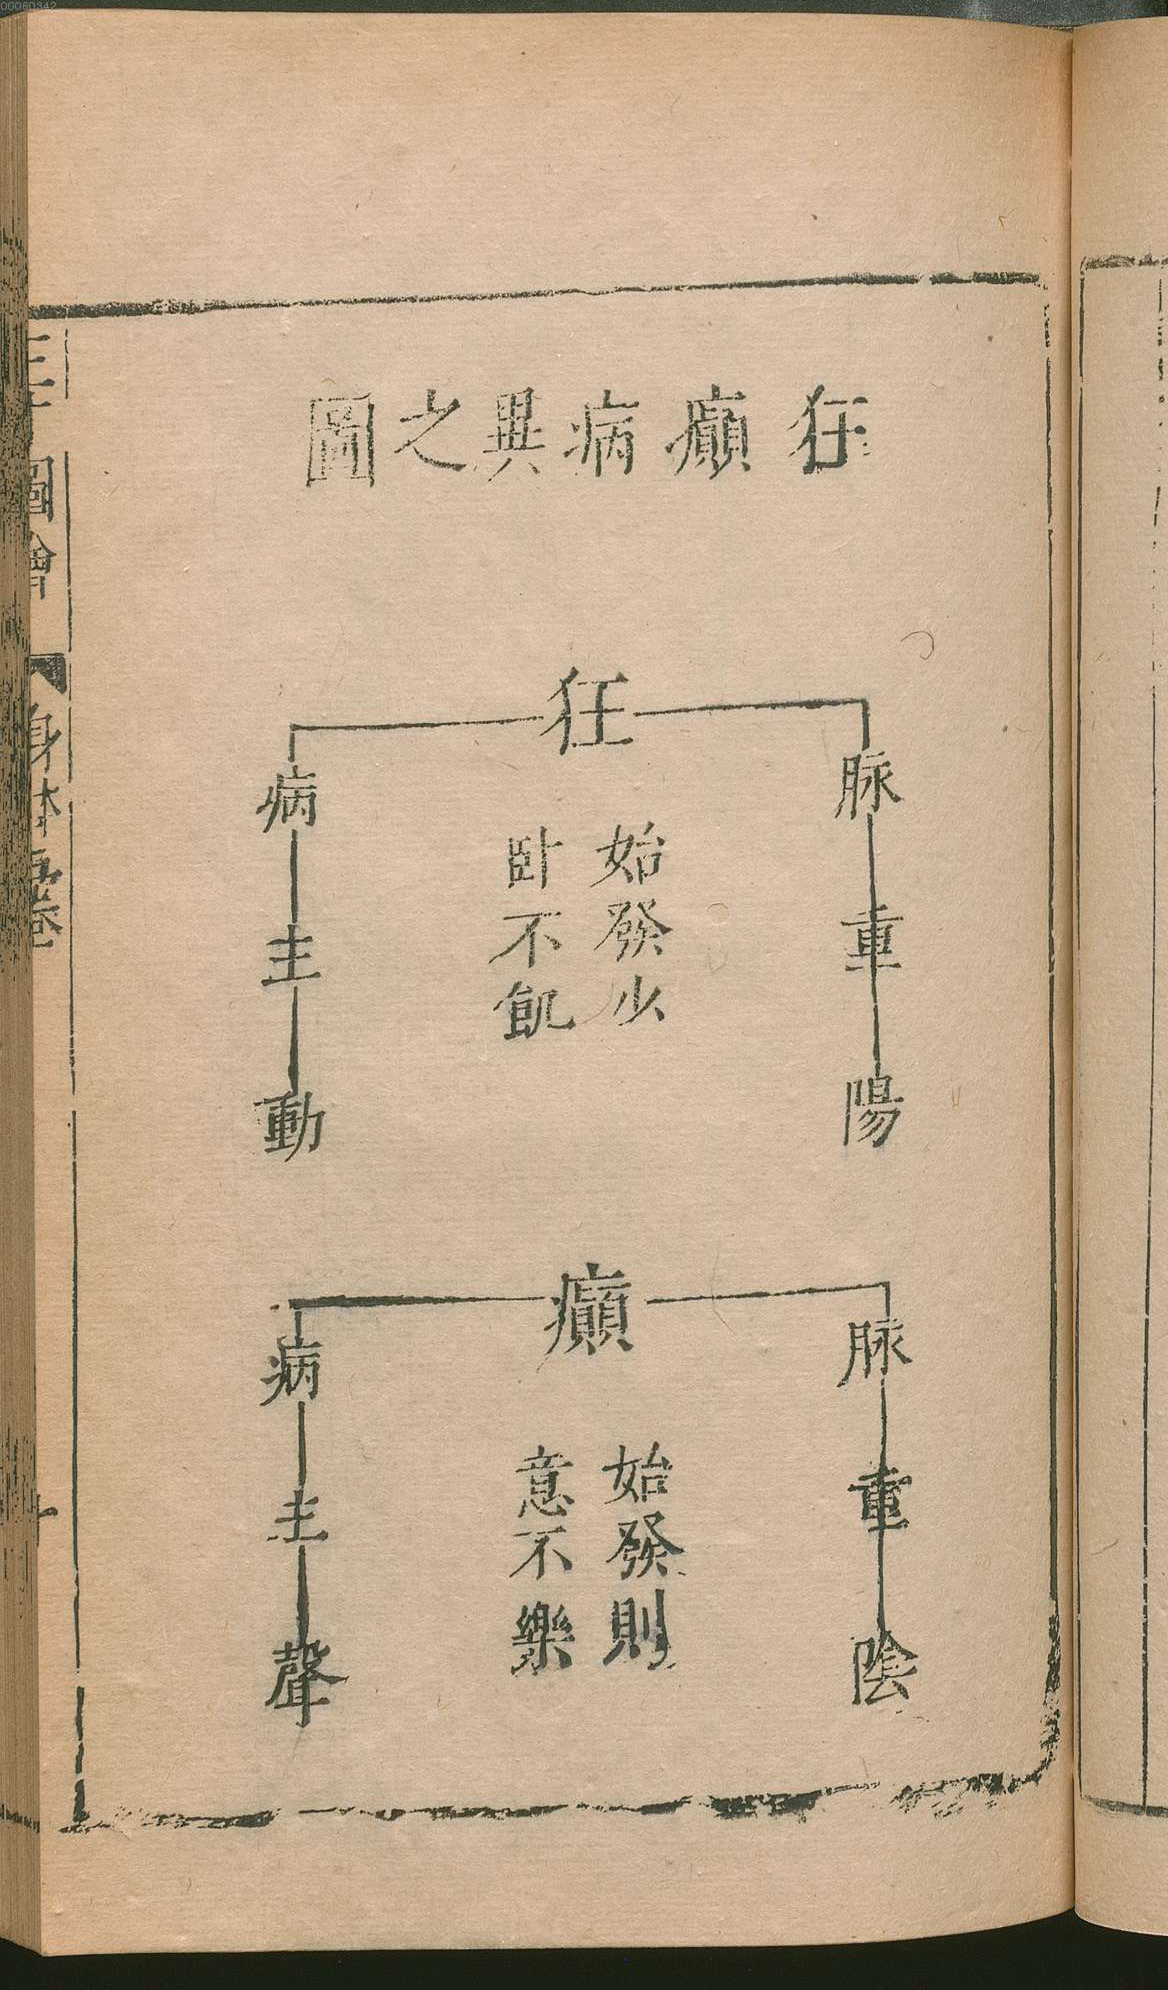 00060342
狂癲病異之圖
狂
脉重陽
始發少
卧不飢
病主動
癲
脉重陰
始發則
意不樂
病主聲
圖會
身体五卷